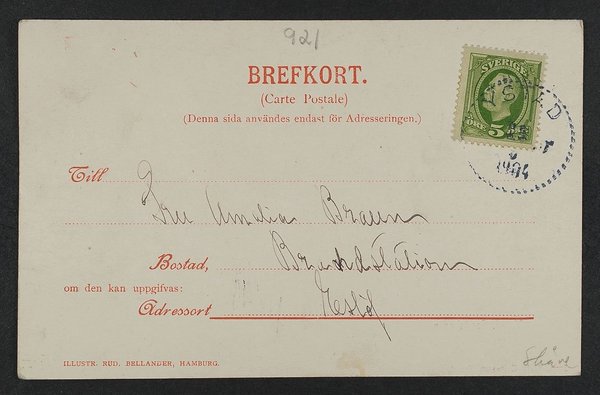 921
BREFKORT.
(Carte Postale)
(Denna sida användes endast för Adresseringen.)
SVERIGE
ÖRE 5
YSTAD
1904
Till
Fru Amelia Braun
Bostad,
Brandstation
om den kan uppgifvas:
Adressort
Eslöf
ILLUSTR. RUD. BELLANDER, HAMBURG.
Skåne